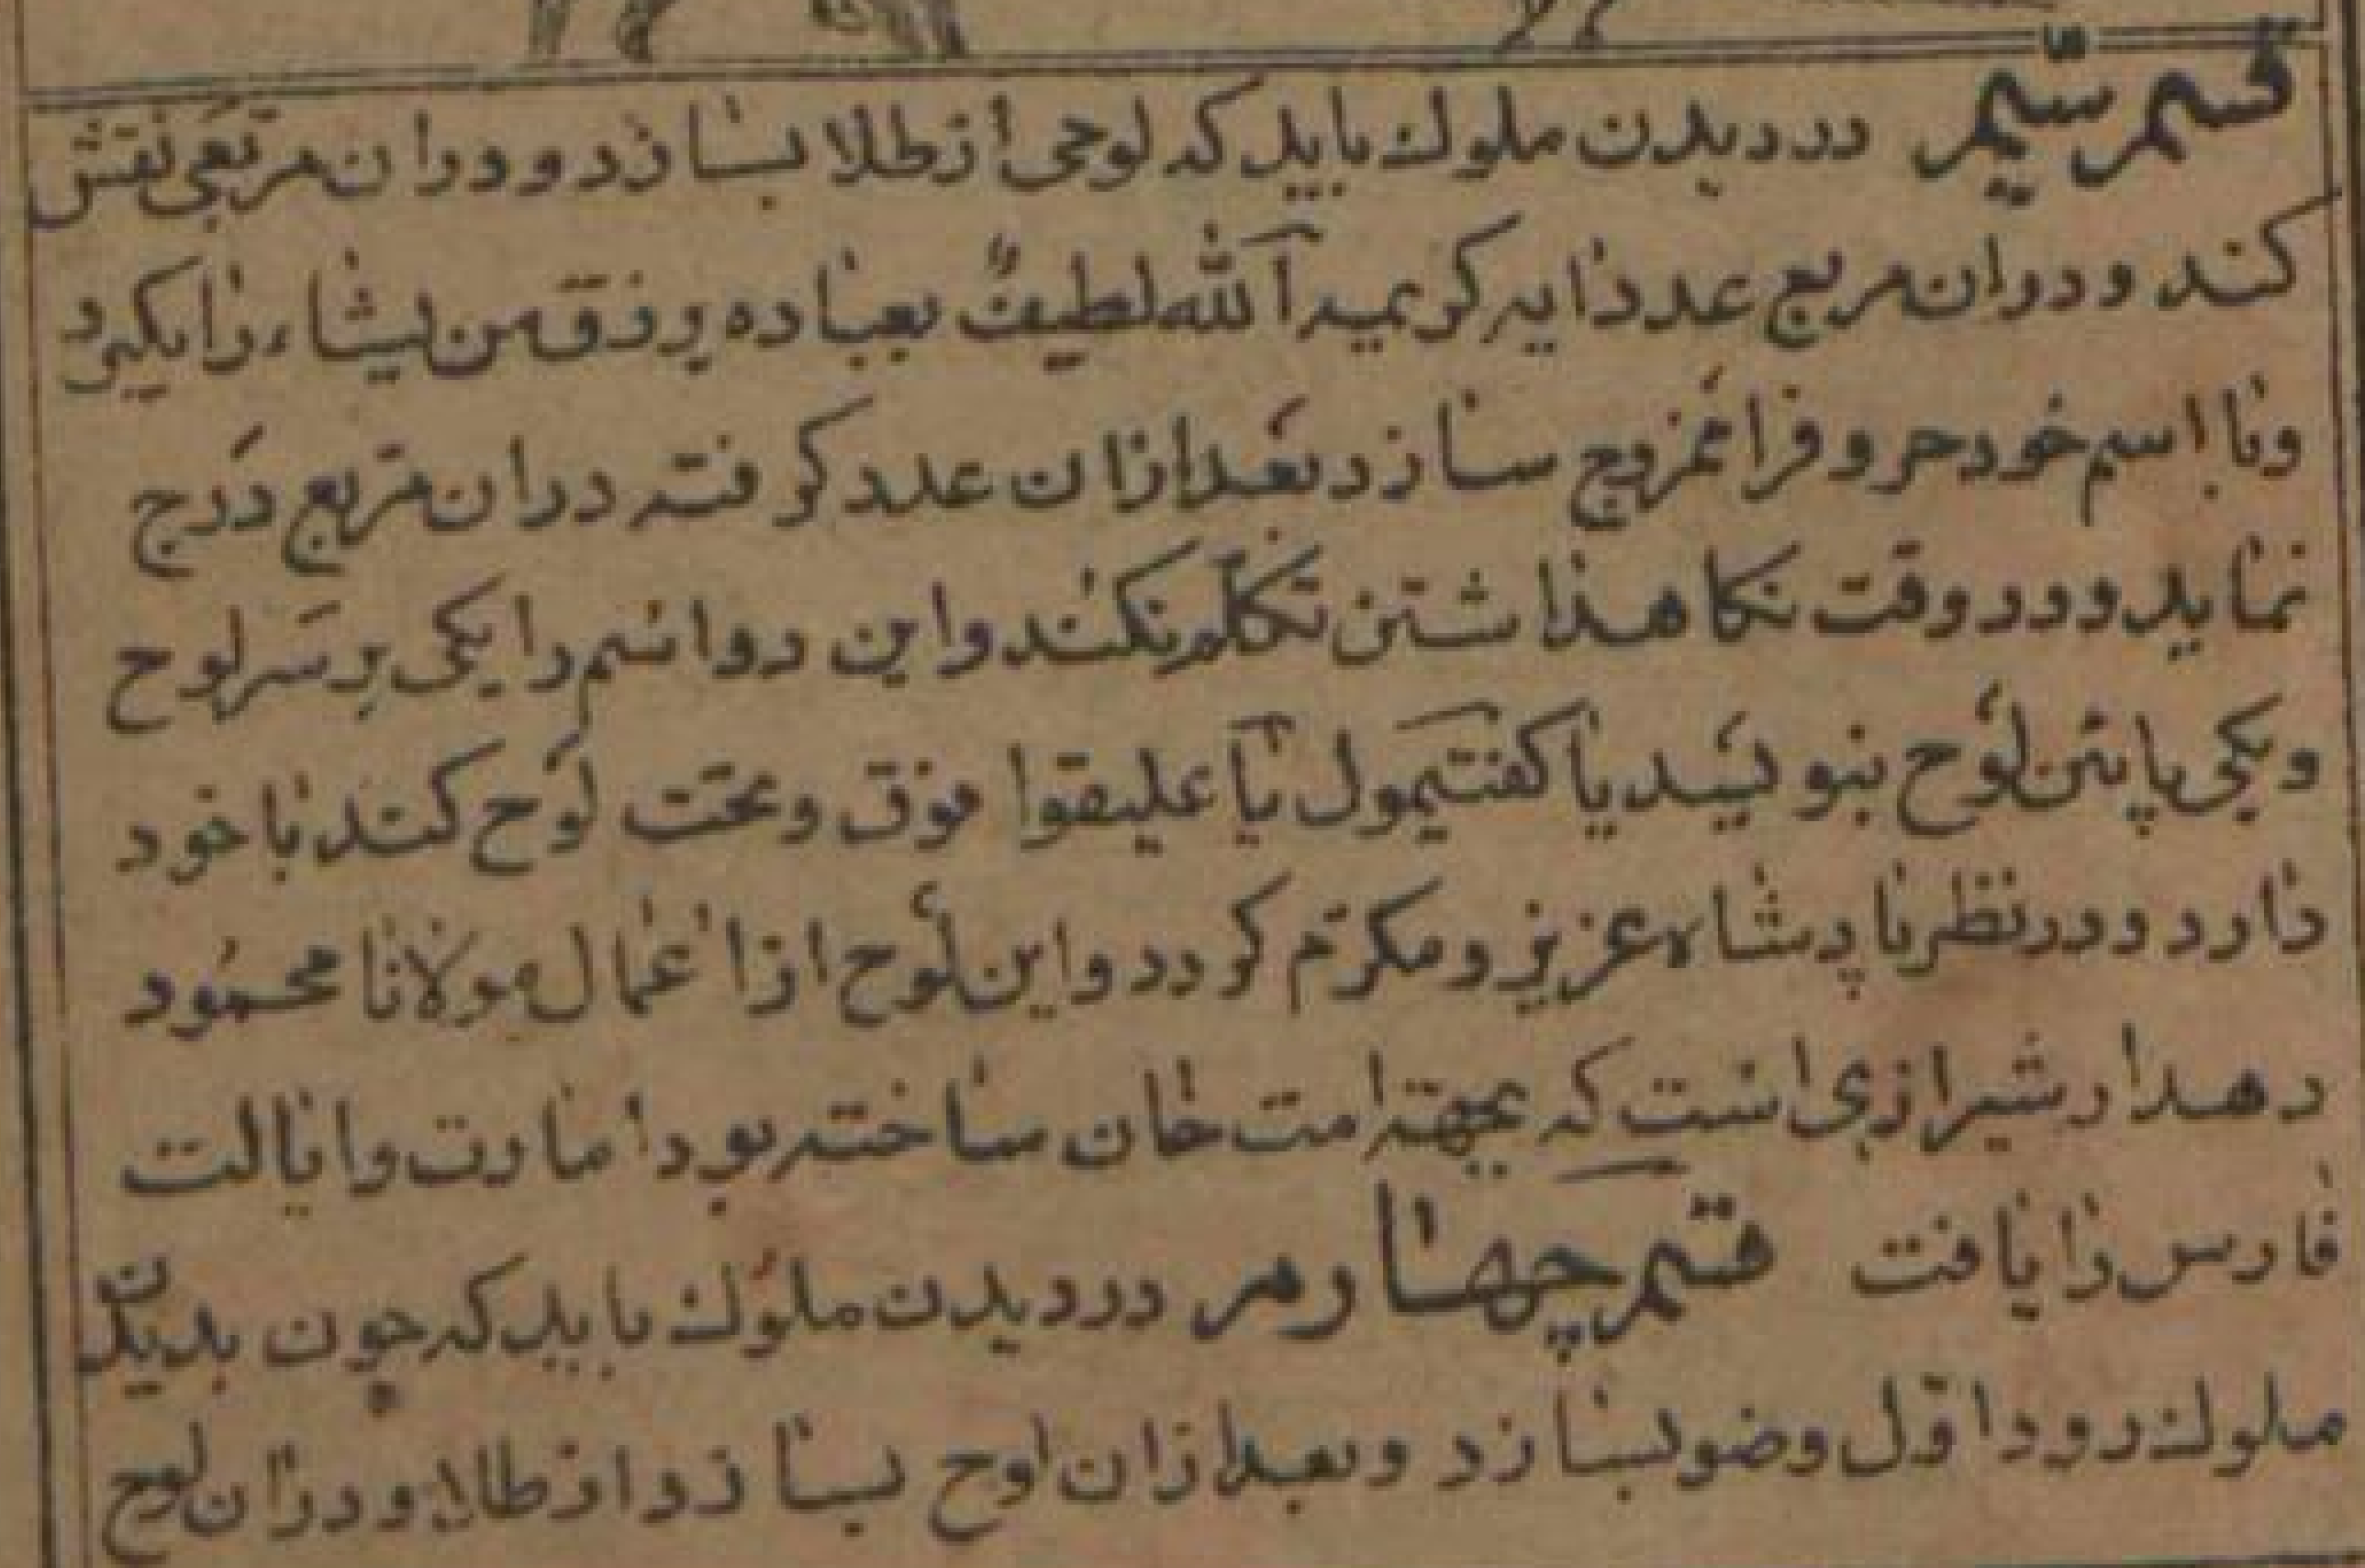 قسم سیم در دیدن ملوک باید که لوحی از طلا بسازد و در ان مربعی نقش
کند و در ان مربع عدد ایه کریمه الله لطیف بعباده یرزق من یشاء را بکیرد
و با اسم خود حروفرا ممزوج سازد بعد ازان عدد کرفته در ان مربع درج
نماید و در وقت نکاهداشتن تکلم نکند و این دو اسم را یکی بر سر لوح
و یکی پائین لوح بنویسد یا کفتیمول یا علیقوا فوق و تحت لوح کند با خود
دارد و در نظر پادشاه عزیز و مکرم کردد و این لوح از اعمال مولانا محمود
دهدار شیرازی است که بجهة امت خان ساخته بود امارت و ایالت
فارس را یافت قسم چهارم در دیدن ملوک باید که چون بدیدن
ملوک رود اول وضو بسازد و بعد ازان لوح بسازد از طلا و دران لوح